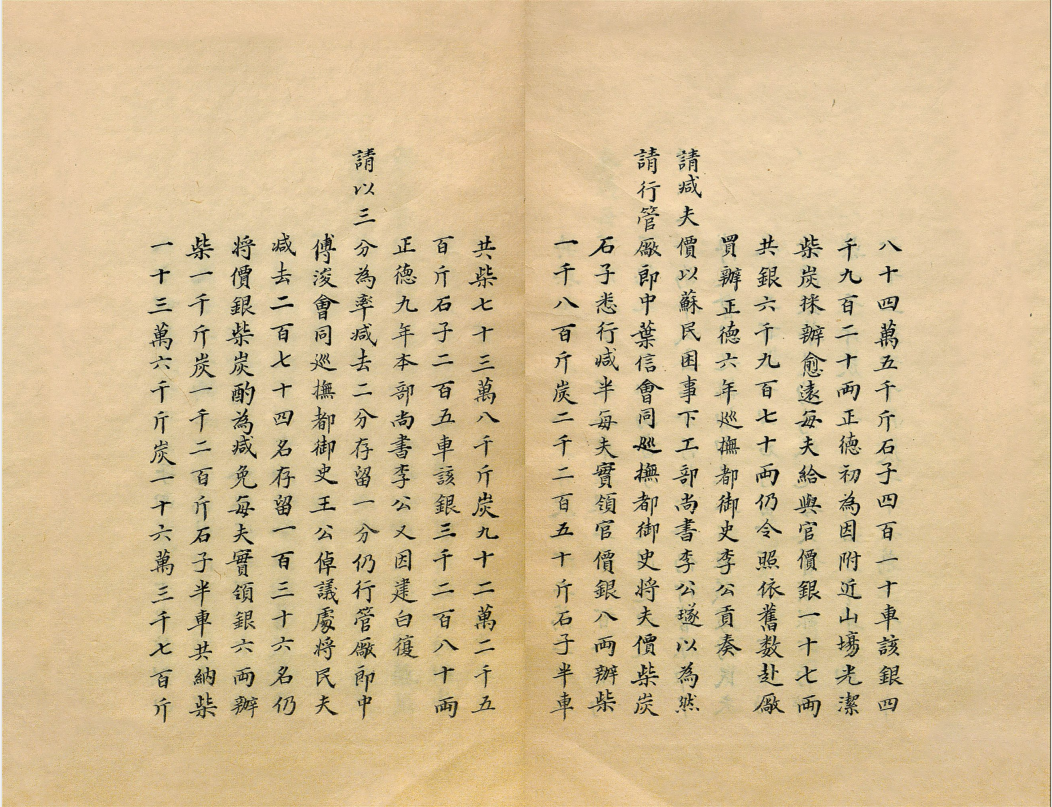 八十四萬五千斤石子四百一十車該銀四
千九百二十兩正德初為因附近山塲光潔
柴炭採辦愈遠每夫給與官價銀一十七兩
共銀六千九百七十兩仍令照依舊数赴厰
買辦正德六年廵撫都御史李公貢奏
請减夫價以蘇民困事下工部尚書李公璲以為然
請行管厰郎中葉信會同廵撫都御史將夫價柴炭
石子悉行减半每夫實領官價銀八兩辦柴
一千八百斤炭二千二百五十斤石子半車
共柴七十三萬八千斤炭九十二萬二千五
百斤石子二百五車該銀三千二百八十兩
正德九年本部尚書李公又因建白復
請以三分為率减去二分存留一分仍行管厰郎中
傅浚會同廵撫都御史王公倬議處將民夫
减去二百七十四名存留一百三十六名仍
將價銀柴炭酌為减免每夫實領銀六兩辦
柴一千斤炭一千二百斤石子半車共納柴
一十三萬六千斤炭一十六萬三千七百斤